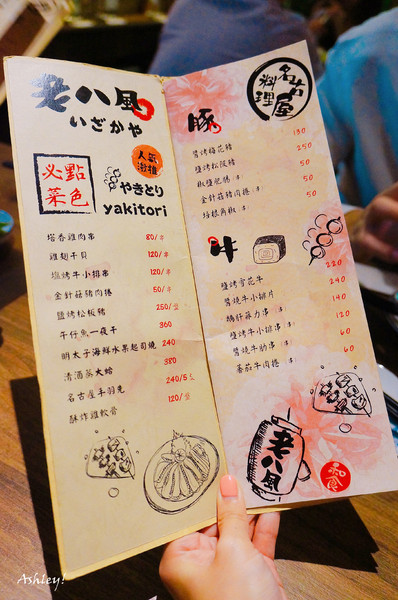 老八風
いざかや
必點
菜色
人氣
激推
やきとり
yakitori
塔香雞肉串 80/串
雞翅干貝 120/串
塩烤牛小排串 120/串
金針菇豬肉捲 50/串
鹽烤松板豬 250/盤
午仔魚一夜干 360
明太子海鮮水果起司燒 240
清酒蒸大蛤 380
名古屋手羽先 240/5支
酥炸雞軟骨 120/盤
名古屋
料理
豚
醬烤梅花豬 150
鹽烤松阪豬 250
椒鹽肥腸 50
金針菇豬肉捲 50
培根角椒 50
牛
鹽烤雪花牛 220
醬燒牛小排片 240
140
鹽烤牛小排串 120
醬燒牛肋串 60
蕃茄牛肉捲 60
老八風
和食
Ashley!